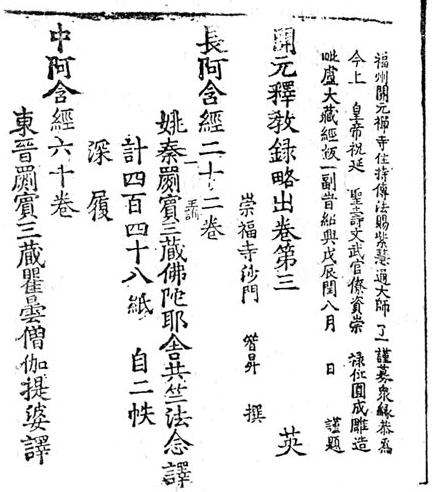 福州開元禪寺住持傳法賜紫慧通大師 了一 謹募衆緣恭爲
今上 皇帝祝延 聖壽文武官僚資崇 祿位圓成雕造
毗盧大藏經板一副旹紹興戊辰閏八月 日 謹題
開元釋教録略出卷第三 英
崇福寺沙門 智昇 撰
長阿含經二十二卷
姚秦罽賓三藏佛陀耶舍共竺法念譯
計四百四十八紙 自二帙
深 履
中阿含經六十卷
東晉罽賓三藏瞿曇僧伽提婆譯